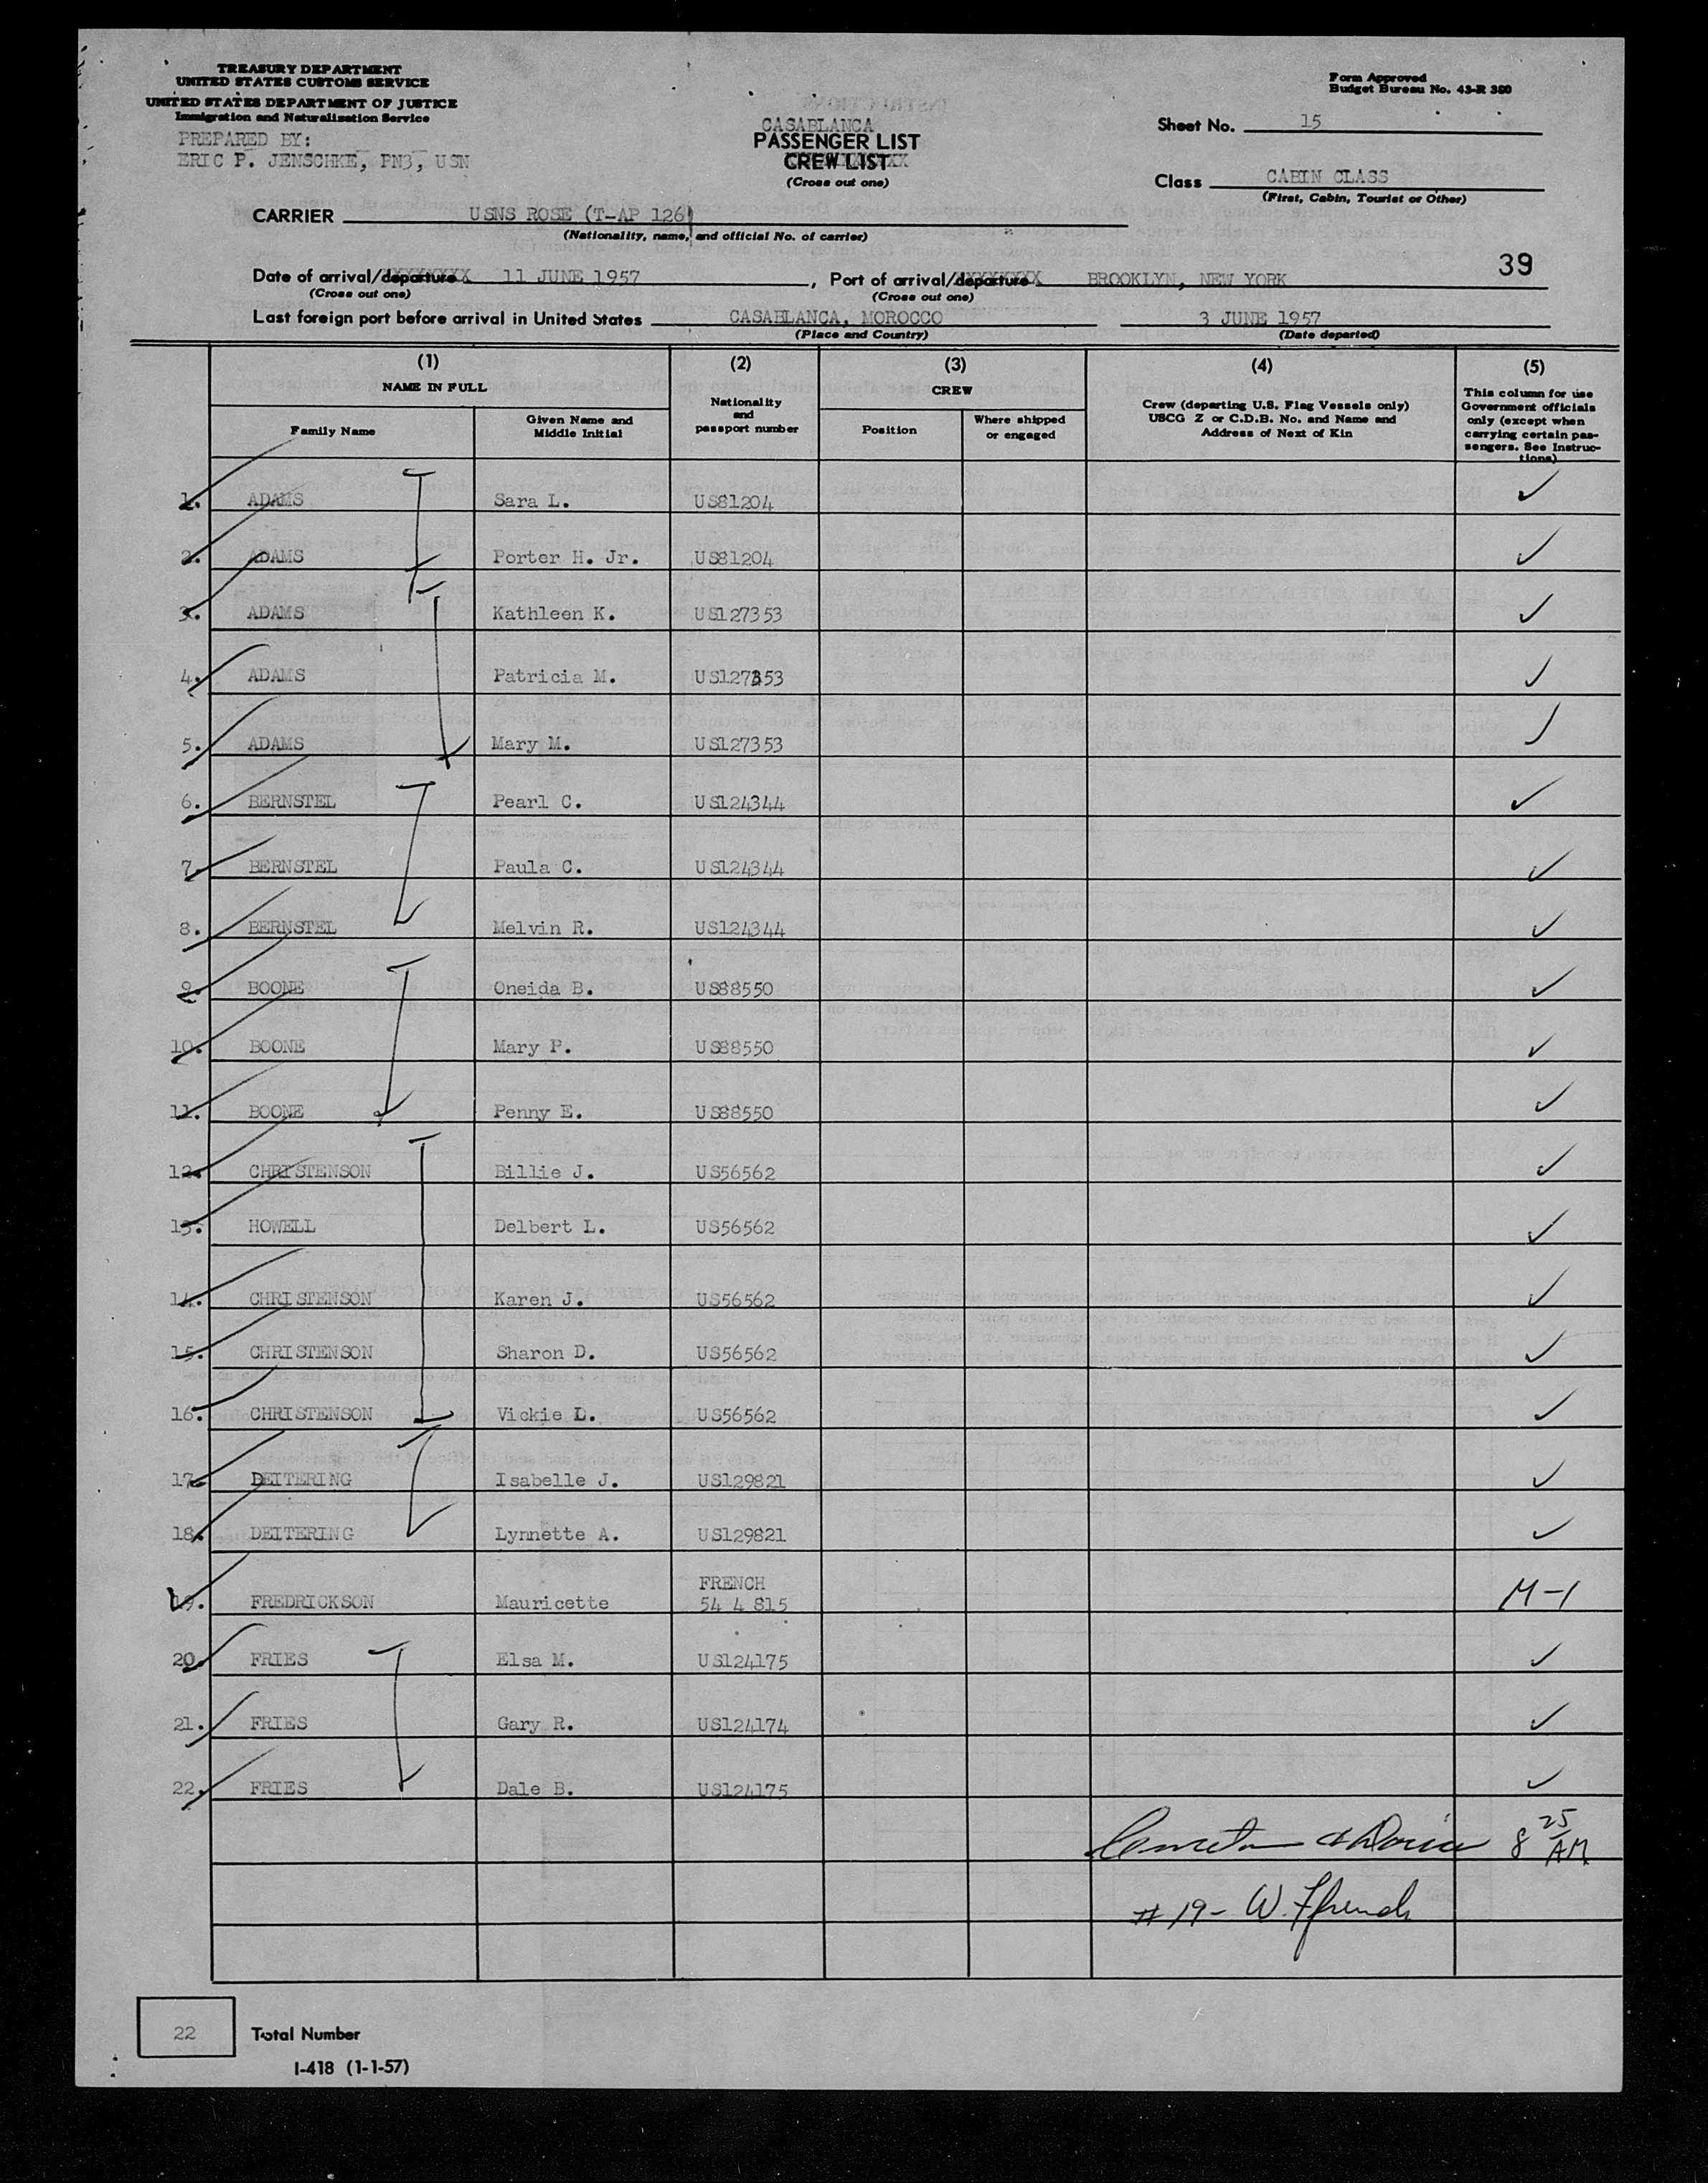 TREASURY DEPARTMENT
UNITED STATES CUSTOMS SERVICE
UNITED STATES DEPARTMENT OF JUSTICE
Immigration and Naturalization Service
PREPARED BY:
ERIC P. JENSCHKE, PN3, USN
CASABLANCA
PASSENGER LIST
CREW LIST
(Cross out one)
Form Approved
Budget Bureau No. 43-R 380
Sheet No. 15
Class CABIN CLASS
(First, Cabin, Tourist or Other)
CARRIER USNS ROSE (T-AP 126)
(Nationality, name, and official No. of carrier)
39
Date of arrival/departure 11 JUNE 1957, Port of arrival/departure BROOKLYN, NEW YORK
(Cross out one) (Cross out one)
Last foreign port before arrival in United States CASABLANCA, MOROCCO 3 JUNE 1957
(Place and Country) (Date departed)
(1) (2) (3) (4) (5)
NAME IN FULL
Family Name
Given Name and
Middle Initial
Nationality
and
passport number
CREW
Position
Where shipped
or engaged
Crew (departing U.S. Flag Vessels only)
USCG Z or C.D.B. No. and Name and
Address of Next of Kin
This column for use
Government officials
only (except when
carrying certain pas-
sengers. See Instruc-
tions)
1. ADAMS Sara L. US81204 ✓
2. ADAMS Porter H. Jr. US81204 ✓
3. ADAMS Kathleen K. US127353 ✓
4. ADAMS Patricia M. US127353 ✓
5. ADAMS Mary M. US127353 ✓
6. BERNSTEL Pearl C. US124344 ✓
7. BERNSTEL Paula C. US124344 ✓
8. BERNSTEL Melvin R. US124344 ✓
9. BOONE Oneida B. US88550 ✓
10. BOONE Mary P. US88550 ✓
11. BOONE Penny E. US88550 ✓
12. CHRISTENSON Billie J. US56562 ✓
13. HOWELL Delbert L. US56562 ✓
14. CHRISTENSON Karen J. US56562 ✓
15. CHRISTENSON Sharon D. US56562 ✓
16. CHRISTENSON Vickie L. US56562 ✓
17. DEITERING Isabelle J. US129821 ✓
18. DEITERING Lynnette A. US129821 ✓
19. FREDRICKSON Mauricette FRENCH 54 4 815 M-1
20. FRIES Elsa M. US124175 ✓
21. FRIES Gary R. US124174 ✓
22. FRIES Dale B. US124175 ✓
8 25 AM
#19- W. Ffrench
22 Total Number
I-418 (1-1-57)